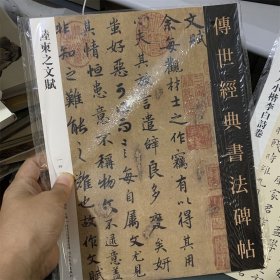 傳世經典書法碑帖
文賦
余每觀材士之作竊有以得其
用心夫其放言遣辭良多變矣妍
蚩好惡可得而言每自屬文尤見
其情恒患意不稱物文不逮意蓋
非知之難能之難也故作文賦
陸柬之文賦
小楷李白詩卷